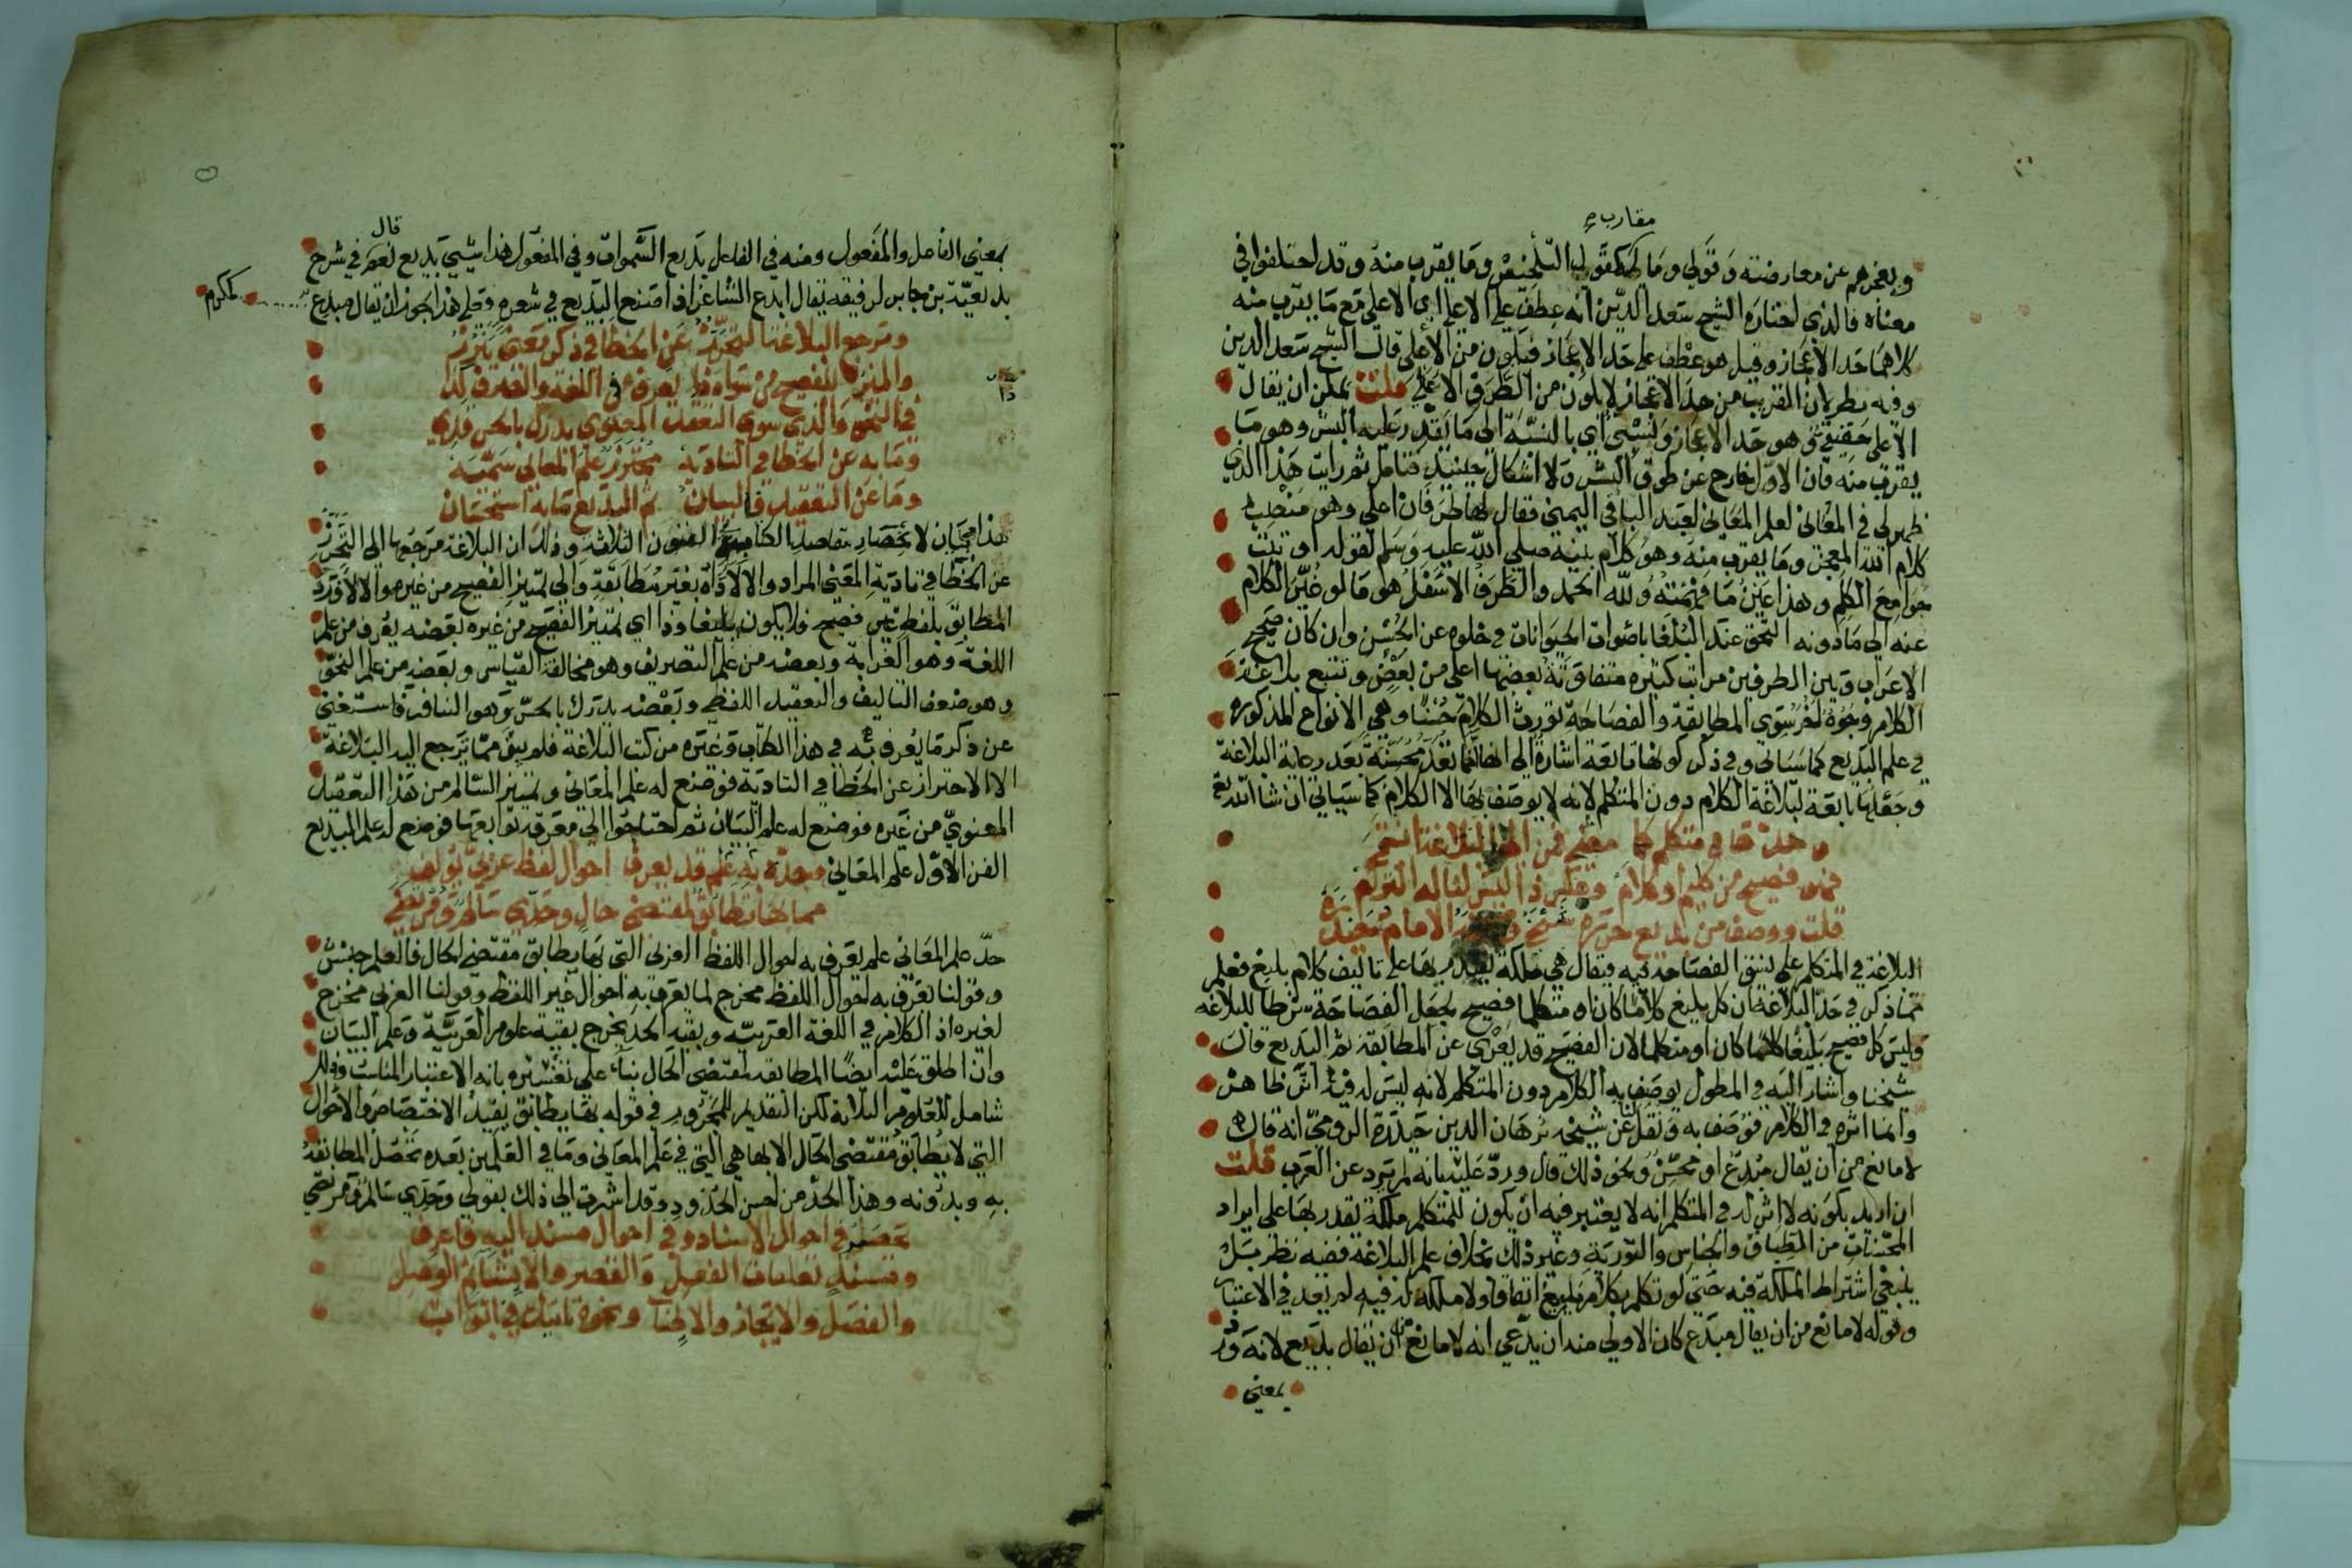 مقارب
ويعجزهم عن معارضته وقولي وما له كقول التلخيص وما يقرب منه وقد اختلفوا في
معناه فالذي اختاره الشيخ سعد الدين انه عطف على الاعلى اي الاعلى مع ما يقرب منه
كلاهما حد الاعجاز وقيل هو عطف على حد الاعجاز فيكون من الأعلى قال الشيخ سعد الدين
وفيه نظر لان القريب من حد الاعجاز لا يكون من الطرف الاعلى قلت يمكن ان يقال
الاعلى حقيقي وهو حد الاعجاز ونسبي اي بالنسبة الى ما يقدر عليه البشر وهو ما
يقرب منه فان الاول خارج عن طوق البشر ولا اشكال حينئذ فتامل ثم رايت هذا الذي
ظهر لي في المعاني لعلم المعاني لعبد الباقي اليمني فقال لها طرفان اعلى وهو منتصب
كلام الله المعجز وما يقرب منه وهو كلام نبيه صلى الله عليه وسلم لقوله اوتيت
جوامع الكلم وهذا عين ما فهمته ولله الحمد والطرف الاسفل هو ما لو غير الكلام
عنه الى ما دونه التحق عند البلغا باصوات الحيوانات في خلوه عن الحسن وان كان صحيح
الاعراب وبين الطرفين مراتب كثيره متفاوتة بعضها اعلى من بعض وتتبع بلاغة
الكلام وجوه اخر سوى المطابقة والفصاحة تورث الكلام حسنا وهي الانواع المذكوره
في علم البديع كما سياتي وفي ذكر كونها تابعة اشارة الى انها انما تعد محسنة بعد رعاية البلاغة
وجعلها تابعة لبلاغة الكلام دون المتكلم لانه لا يوصف بها الا الكلام كما سياتي ان شا الله تع
وحدها في متكلم كما مضى فمن الى البلاغة انتمى
فهو فصيح من كليم او كلام وعكس ذا ليس لناله التزام
قلت ووصف من بديع حرره شيخي الامام
البلاغة في المتكلم على نسق الفصاحة فيه فيقال هي ملكة يقتدر بها على تاليف كلام بليغ فعلم
مما ذكر في حد البلاغة ان كل بليغ كلاما كان او متكلما فصيح لجعل الفصاحة شرطا للبلاغه
وليس كل فصيح بليغا كلاما كان او متكلما لان الفصيح قد يعرى عن المطابقة ثم البديع قال
شيخنا واشار اليه في المطول يوصف به الكلام دون المتكلم لانه ليس له فيه اثر ظاهر
وانما اثره في الكلام فوصف به ونقل لنا عن شيخه برهان الدين حيدرة الرومي انه قال
لا مانع من ان يقال مبدع او محسن ونحو ذلك قال ورد عليه بانه لم يرد عن العرب قلت
ان اريد بكونه لا اثر له في المتكلم انه لا يعتبر فيه ان يكون للمتكلم ملكة يقدر بها على ايراد
المحسنات من الطباق والجناس والتورية وغير ذلك بخلاف علم البلاغة ففيه نظر بل
ينبغي اشتراط الملكة فيه حتى لو تكلم بكلام بليغ اتفاقا ولا ملكة له فيه لم يعد في الاعتبار
وقوله لا مانع من ان يقال مبدع كان الاولى منه ان يدعي انه لا مانع من ان يقال بديع لانه ورد
بمعنى
قال
بمعنى الفاعل والمفعول ومنه في الفاعل بديع السموات وفي المفعول هذا شيئ بديع نعم في شرح
بديعية بن جابر لرفيقه يقال ابدع الشاعر اذا اصنع البديع في شعره وعلى هذا يجوز ان يقال مبدع
لمكرم
ومرجع البلاغة التحرز عن الخطا في ذكر معنى يبرز
والميز للفصيح من سواه ذا يعرف في اللغة والصرف كذا
في النحو والذي سوى التعقد المعنوي يدرك بالحس قد
وما به عن الخطا في التاديه محترز علم المعاني سمه
وما عن التعقيد فالبيان ثم البديع ما به استحسان
هذا بيان لانحصار مقاصد الكتاب في الفنون الثلاثة وذلك ان البلاغة مرجعها الى التحرز
عن الخطا في تادية المعنى المراد والا لاداه بغير مطابقة والى تمييز الفصيح من غيره والا لاورد
المطابق بلفظ غير فصيح فلا يكون بليغا وذا اي تمييز الفصيح من غيره بعضه يعرف من علم
اللغة وهو الغرابة وبعضه من علم التصريف وهو مخالفة القياس وبعضه من علم النحو
وهو ضعف التاليف والتعقيد اللفظي وبعضه يدرك بالحس وهو التنافر فاستغنى
عن ذكر ما يعرف به في هذا الكتاب وغيره من كتب البلاغة فلم يبق مما ترجع اليه البلاغة
الا الاحتراز عن الخطا في التادية فوضع له علم المعاني وتمييز السالم من هذا التعقيد
المعنوي من غيره فوضع له علم البيان ثم احتاجوا الى معرفة توابعها فوضع له علم البديع
الفن الاول علم المعاني وحده به علم قد يعرف احوال لفظ عربي يولف
مما بها تطابق لمقتضى حال وحدي سالم ومرتضى
حد علم المعاني علم يعرف به احوال اللفظ العربي التي بها يطابق مقتضى الحال فالعلم جنس
وقولنا يعرف به احوال اللفظ مخرج لما يعرف به احوال غير اللفظ وقولنا العربي مخرج
لغيره اذ الكلام في اللغة العربيه وبقية الحد يخرج بقية علوم العربية وعلم البيان
وان اطلق عليه ايضا المطابقة لمقتضى الحال بناء على تفسيره بانه الاعتبار المناسب وذلك
شامل للعلوم الثلاثة لكن التقديم للمجرور في قوله بها يطابق يفيد الاختصاص والاحوال
التي لا يطابق مقتضى الحال الا بها هي التي في علم المعاني وما في العلمين بعده تحصل المطابقة
به وبدونه وهذا الحد من احسن الحدود وقد اشرت الى ذلك بقولي وحدي سالم ومرتضى
يحصر في احوال الاسناد وفي احوال مسند اليه فاعرف
ومسند تعلقات الفعل والقصر والانشاء ثم الوصل
والفصل والايجاز والاطناب ونحوه تاتيك في ابواب